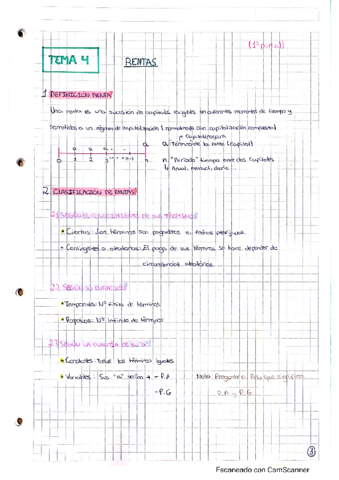 (1º parcial)
TEMA 4 RENTAS
1. DEFINICIÓN RENTA
Una renta es una sucesión de capitales exigibles en diferentes momentos de tiempo y
sometidos a un régimen de capitalización (normalmente con capitalización compuesta)
a a a a Término de la renta (capital)
0 1 2 3 n-1 n "Periodo" tiempo entre dos capitales
Anual, mensual, diario
2. CLASIFICACIÓN DE RENTAS
2.1 SEGÚN EL CONOCIMIENTO DE SUS TÉRMINOS
Ciertas: Los términos son pagaderos en fechas prefijadas.
Contingentes o aleatorias: El pago de sus términos se hace depender de
circunstancias aleatorias.
2.2 SEGÚN SU DURACIÓN
Temporales: Nº finito de términos
Perpetuas: Nº infinito de términos
2.3 SEGÚN LA CUANTÍA DE SU "a"
Constantes: Todos los términos iguales
Variables: Sus "a" varían → - P.A Nota: Preguntar a
- P.G P.A y P.G
3
Escaneado con CamScanner